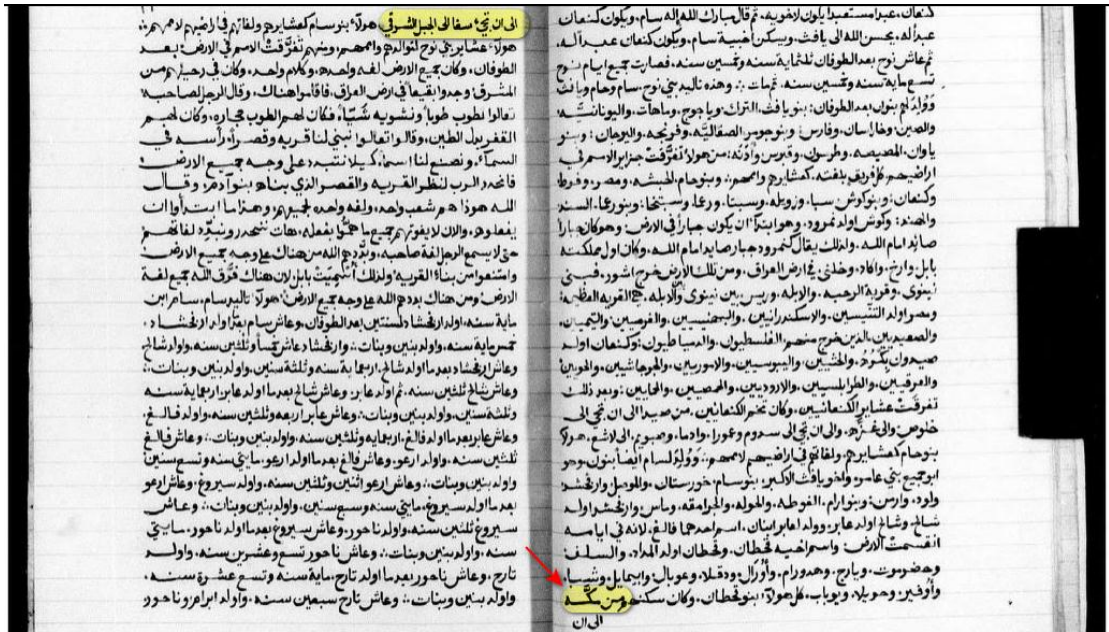 كنعان، عبدا مستعبدا يكون لاخويه، ثم قال مبارك الله إله سام، ويكون كنعان
عبدا له، يحسن الله الى يافث، ويسكن أخبية سام، ويكون كنعان عبدا له،
ثم عاش نوح بعد الطوفان ثلثماية سنه وخمسين سنه، فصارت جميع ايام نوح
تسع مايه سنه وخمسين سنه، ثم مات ∴ وهذه تاليد بني نوح، سام وحام ويافث
ووُلِد لهم بنون بعد الطوفان: بنو يافث، الترك، وياجوج، وماهات، واليونانيه،
والصين، وخراسان، وفارس: وبنو جومر، الصقالبه، وفرنجه، والبرجان: وبنو
ياوان، المصيصه، وطرسوس، وقبرس، وأدنه: من هولا تفرقت جزاير الامم في
اراضيهم كل فريق بلغته، كعشايرهم واممهم: وبنو حام، الحبشه، ومصر، وفوط،
وكنعان: وبنو كوش، سبا، وزويله، وسبتا، ورعما، وسبتخا: وبنو رعما، السند،
والهند: وكوش اولد نمرود، وهو ابتدأ ان يكون جبارا في الارض: وهو كان جبارا
صايد امام الله، ولذلك يقال كنمرود جبار صايد امام الله، وكان اول مملكته
بابل وارخ، واكاد، وخلني، في ارض العراق، ومن تلك الارض خرج اشور، فبنى
نينوى، وقرية الرحبه، والابله، وريسن بين نينوى والابله، هي القريه العظيمه:
ومصر اولد التنيسيين، والاسكندرانيين، والبهنسيين، والفرميين، واليميان،
والصعيديين، الذين خرج منهم الفلسطيون، والدمياطيون: وكنعان اولد
صيدون بكره، والحثيين، واليبوسيين، والاموريين، والجرجاشيين، والحويين،
والعرقيين، والطرابلسيين، والاروديين، والحمصيين، والحمايين، وبعد ذلك
تفرقت عشاير الكنعانيين، وكان تخم الكنعانيين، من صيدا الى ان تجي الى
خلوص، والى غزه، والى ان تجي الى سدوم وعمورا، وادما، وصبويم، الى لاشع، هولا
بنو حام كعشايرهم، ولغاتهم في اراضيهم اممهم ∴ ووُلِد لسام ايضا بنون، وهو
ابو جميع بني عابر، واخو يافث الاكبر: بنو سام، خورستان، والموصل، وارفخشد
ولود، وارمن: وبنو ارام، الغوطه، والحوله، والجرامقه، وماس: وارفخشد اولد
شالح، وشالح اولد عابر: وولد لعابر ابنان، اسم احدهما فالغ، لانه في ايامه
انقسمت الارض: واسم اخيه قحطان، وقحطان اولد المداد، والسلف،
وحضرموت، ويارح، وهدورام، وأوزال، ودقلا، وعوبال، وابيمايل، وشبا،
وأوفير، وحويلا، ويوباب، كل هولا، بنو قحطان، وكان سكنهم من مكّه
الى ان
الى ان تجي سفا الى الجبل الشرقي: هولا، بنو سام كعشايرهم ولغاتهم في اراضيهم لاممهم ∴
هولا، عشاير بني نوح لتوالدهم واممهم، ومنهم تفرقت الامم في الارض، بعد
الطوفان، وكان جميع الارض لغه واحده، وكلام واحد، وكان في رحيلهم من
المشرق، وجدوا بقيعا في ارض العراق، فاقاموا هناك، وقال الرجل لصاحبه
تعالوا نطوب طوبا، ونشويه شيّا، فكان لهم الطوب حجاره، وكان لهم
القفر بدل الطين، وقالوا تعالوا نبني لنا قريه وقصرا، رأسه في
السماء، ونصنع لنا اسما، كيلا نتبدد على وجه جميع الارض:
فانحدر الرب لنظر القريه والقصر الذي بناه بنو آدم: وقال
الله هوذا هم شعب واحد، ولغه واحده لجميعهم، وهذا ما ابتدأوا ان
يفعلوه، والان لا يفوتهم جميع ما همّوا بفعله، هات ننحدر ونبدد لغاتهم
حتى لا يسمع الرجل لغة صاحبه، وبددهم الله من هناك على وجه جميع الارض
وامتنعوا من بناء القريه، ولذلك أسميت بابل، لان هناك فرّق الله جميع لغة
الارض: ومن هناك بددهم الله على وجه جميع الارض: هولا تاليد سام، سام ابن
مايه سنه، اولد ارفخشاد لسنتين بعد الطوفان، وعاش سام بعد ما اولد ارفخشاد،
خمس مايه سنه، واولد بنين وبنات ∴ وارفخشاد عاش خمسا وثلثين سنه، واولد شالح
وعاش ارفخشاد بعد ما اولد شالح، اربعماية سنه وثلثة سنين، واولد بنين وبنات ∴
وعاش شالح ثلثين سنه، ثم اولد عابر: وعاش شالح بعد ما اولد عابر، اربعماية سنه
وثلثة سنين، واولد بنين وبنات ∴ وعاش عابر اربعه وثلثين سنه، واولد فالغ،
وعاش عابر بعد ما اولد فالغ، اربعمايه وثلثين سنه، واولد بنين وبنات ∴ وعاش فالغ
ثلثين سنه، واولد ارعو، وعاش فالغ بعد ما اولد ارعو، مايتي سنه وتسع سنين
واولد بنين وبنات ∴ وعاش ارعو اثنين وثلثين سنه، واولد سيروغ، وعاش ارعو
بعد ما اولد سيروغ، مايتي سنه وسبع سنين، واولد بنين وبنات ∴ وعاش
سيروغ ثلثين سنه، واولد ناحور، وعاش سيروغ بعد ما اولد ناحور، مايتي
سنه، واولد بنين وبنات ∴ وعاش ناحور تسع وعشرين سنه، واولد
تارح، وعاش ناحور بعد ما اولد تارح، مايه سنه وتسع عشرة سنه،
واولد بنين وبنات ∴ وعاش تارح سبعين سنه، واولد ابرام وناحور